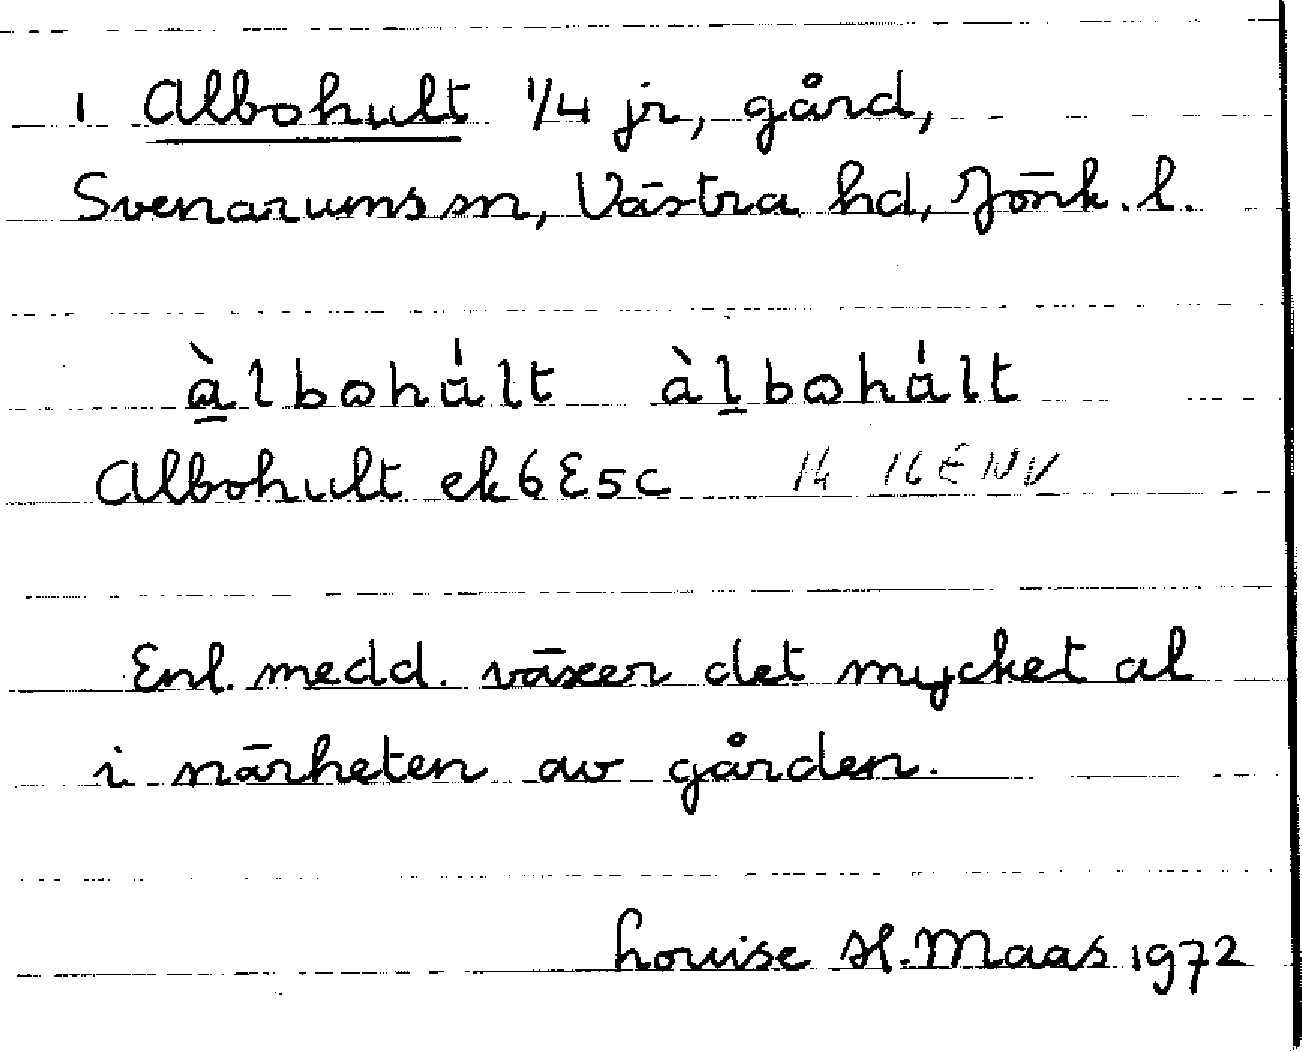 1 Albohult 1/4 jr, gård,
Svenarums sn, Västra hd, Jönk. l.
àlbɷhúlt àlbɷhúlt
Albohult ek 6E5c 14 16E NV
Enl. medd. växer det mycket al
i närheten av gården.
Louise H. Maas 1972